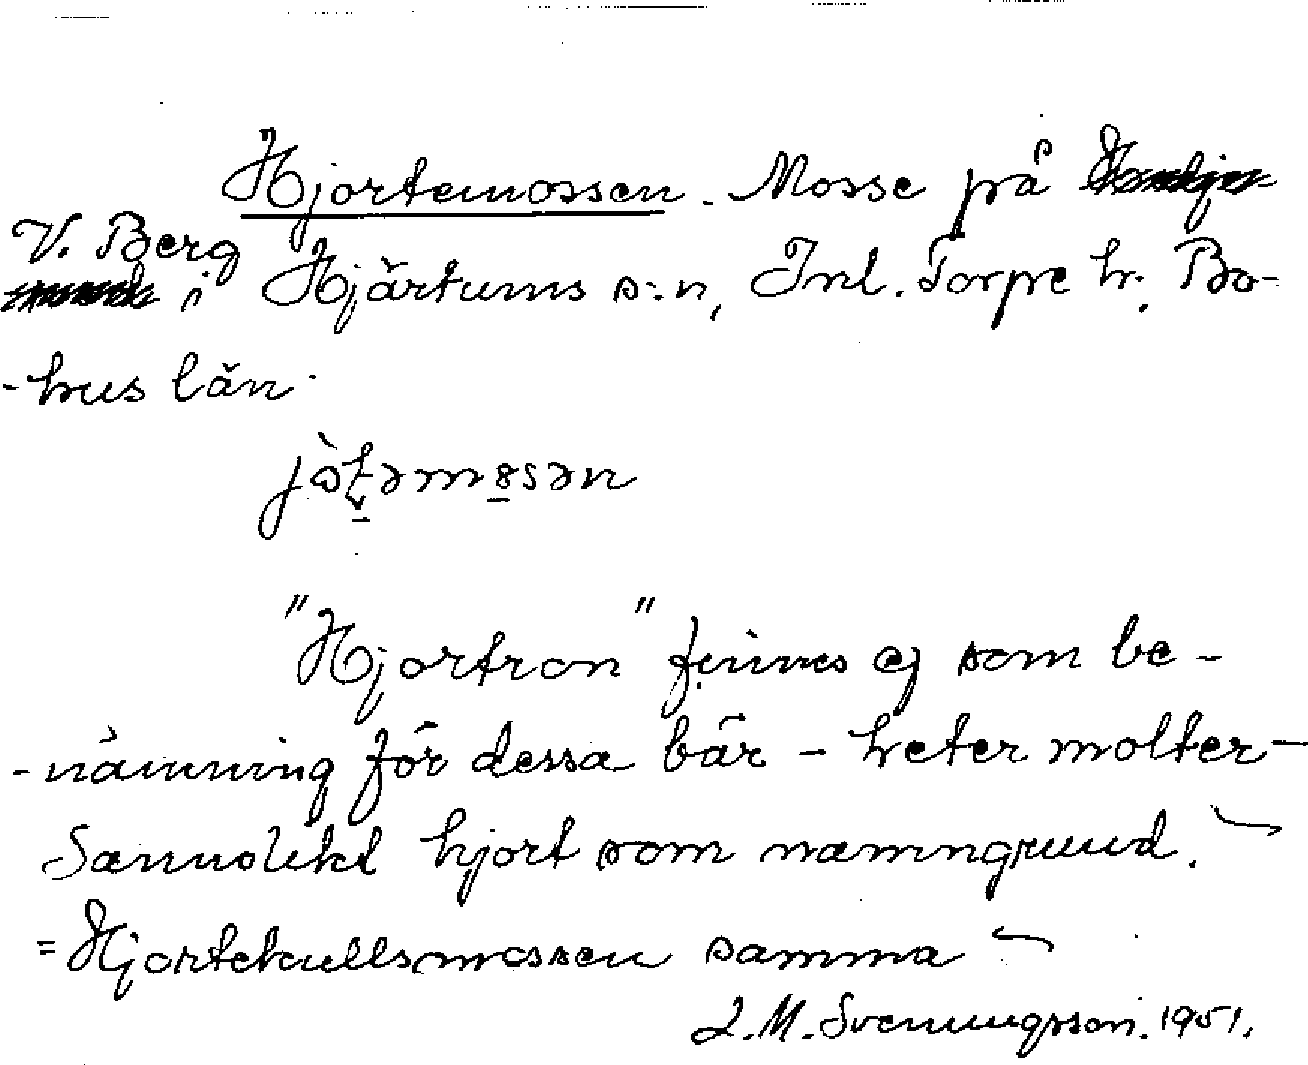 Hjortemossen. Mosse på
V. Berg
i Hjärtums s:n, Inl. Torpe hr. Bo-
-hus län.
"Hjortron" finnes ej som be-
-nämning för dessa bär – heter molter –
Sannolikt hjort som namngrund.
= Hjortekullsmossen samma
L.M. Svenungsson. 1951.